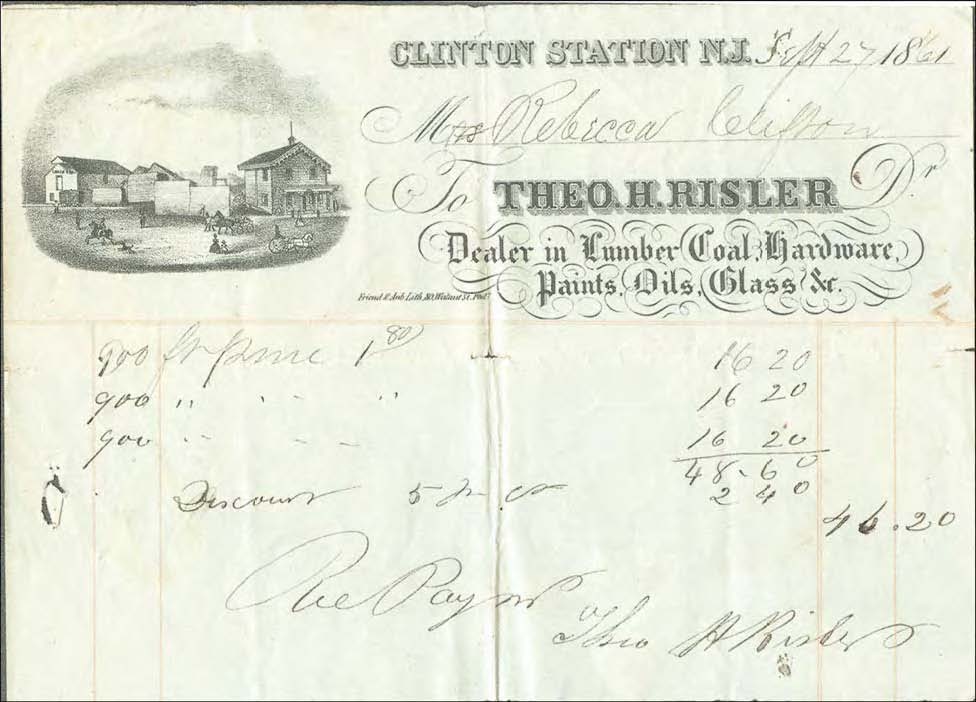 CLINTON STATION N.J. Sept 27 1861
Mrs Rebecca Clifton
To THEO. H. RISLER Dr
Dealer in Lumber Coal, Hardware,
Paints, Oils, Glass &c.
Friend & Aub Lith. 80, Walnut St. Phila
900 ft pine 1 80 16 20
900 " " " 16 20
900 " " 16 20
48.60
Discount 5 2 40
46.20
Rec Paymt
Theo H Risler